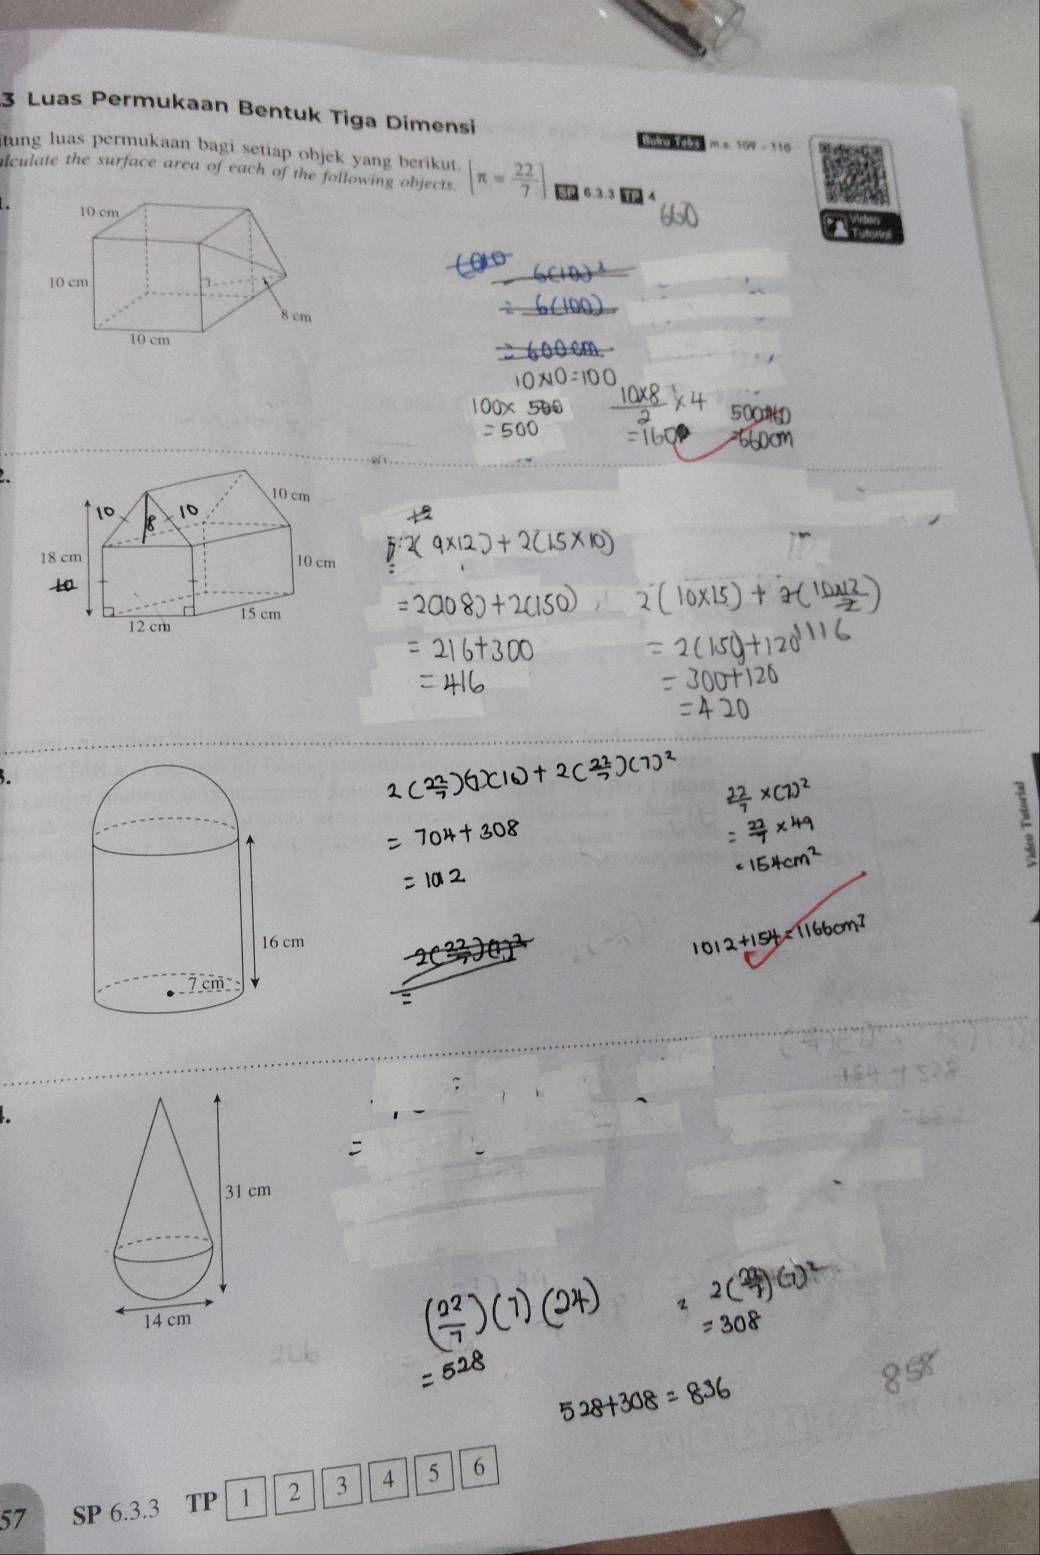 3 Luas Permukaan Bentuk Tiga Dimensi
itung luas permukaan bagi setiap objek yang berikut.
alculate the surface area of each of the following objects. [π = 22/7] SP 6.3.3 TP 4
Buku Teks m.s. 109 - 116
Video Tutorial
660
10 cm
10 cm
8 cm
10 cm
6(10)²
= 6(100)
= 600cm
10×10=100
100×500
=500
10×8/2 ×4
=160
=660cm
2.
10
8
10
10 cm
18 cm
10 cm
10
15 cm
12 cm
2(9×12)+2(15×10)
=2(108)+2(150)
=216+300
=416
2(10×15)+2(10×12/2)
=2(150)+120
1116
=300+120
=420
3.
16 cm
7 cm
2(22/7)(7)(16)+2(22/7)(7)²
=704+308
=1012
22/7 ×(7)²
=22/7 ×49
=154cm²
2(22/7)(7)²
=
1012+154=1166cm²
4.
31 cm
14 cm
=
(22/7)(7)(24)
=528
2(22/7)(7)²
=308
528+308=836
858
Video Tutorial
57 SP 6.3.3 TP 1 2 3 4 5 6